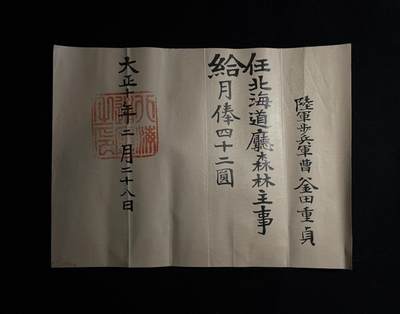 陸軍歩兵軍曹 釜田重貞
任北海道廳森林主事
給月俸四十二圓
大正十年二月二十八日